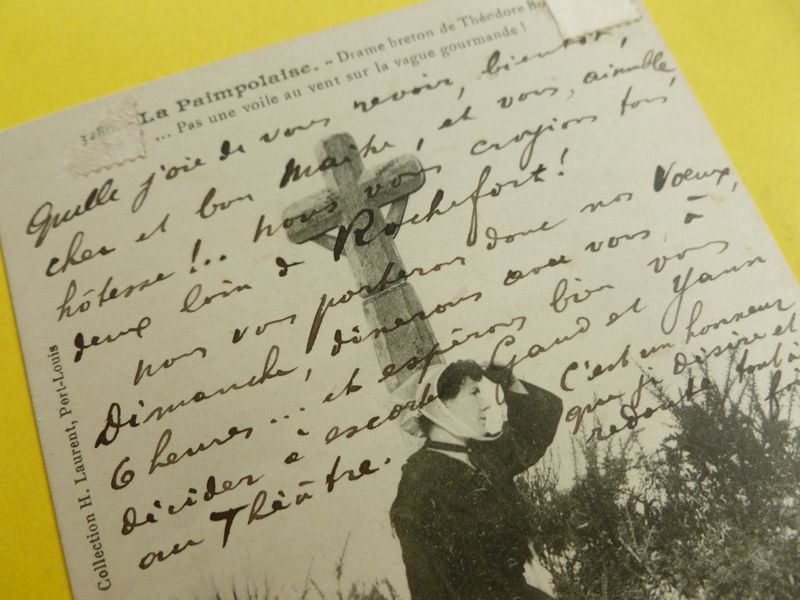 3280. La Paimpolaise. - Drame breton de Théodore Bo
... Pas une voile au vent sur la vague gourmande !
Quelle joie de vous revoir, bientôt,
cher et bon Maître, et vous, aimable
hôtesse !.. nous vous croyions tous
deux loin de Rochefort !
nous vous porterons donc nos Voeux,
Dimanche, dînerons avec vous, à
6 heures... et espérons bien vous
décider à escorter Gaud et Yann
au Théâtre.
C'est un honneur
que je désire et
redoute tout à
Collection H. Laurent, Port-Louis